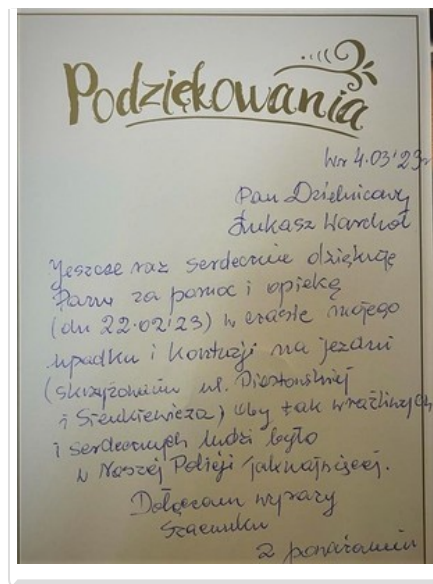 Podziękowania
Wr 4.03'23r
Pan Dzielnicowy
Łukasz Warchoł
Jeszcze raz serdecznie dziękuję
Panu za pomoc i opiekę
(dn 22.02'23) w czasie mojego
upadku i kontuzji na jezdni
(skrzyżowaniu ul. Piastowskiej
i Sienkiewicza) oby tak wrażliwych
i serdecznych ludzi było
w Naszej Policji jaknajwięcej.
Dołączam wyrazy
szacunku
z poważaniem